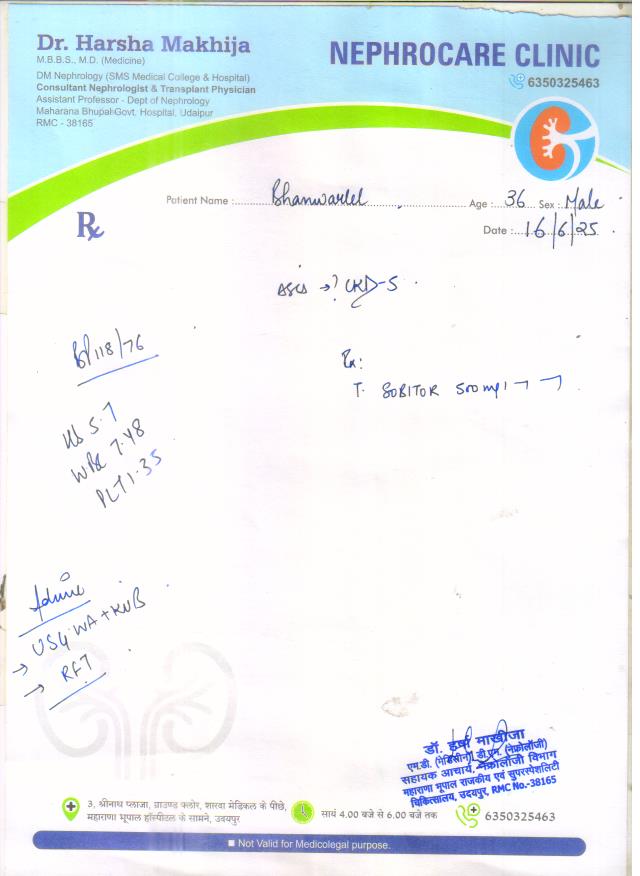 Dr. Harsha Makhija
M.B.B.S., M.D. (Medicine)
DM Nephrology (SMS Medical College & Hospital)
Consultant Nephrologist & Transplant Physician
Assistant Professor - Dept of Nephrology
Maharana Bhupal Govt. Hospital, Udaipur
RMC - 38165
NEPHROCARE CLINIC
6350325463
Patient Name : Bhanwarlal Age : 36 Sex : Male
Rx Date : 16/6/25
→? CKD-5
BP 118/76
Rx:
T. SOBITOR 500mg 1
Hb 5.7
WBC 7.48
PLT 1.35
Advice
→ USG WA + KUB
→ RFT
डॉ. हर्षा माखीजा
एम.डी. (मेडिसीन) डी.एम. (नेफ्रोलॉजी)
सहायक आचार्य, नेफ्रोलॉजी विभाग
महाराणा भूपाल राजकीय एवं सुपरस्पेशलिटी
चिकित्सालय, उदयपुर, RMC No.-38165
3, श्रीनाथ प्लाजा, ग्राउण्ड फ्लोर, शारदा मेडिकल के पीछे,
महाराणा भूपाल हॉस्पीटल के सामने, उदयपुर
सायं 4.00 बजे से 6.00 बजे तक
6350325463
Not Valid for Medicolegal purpose.